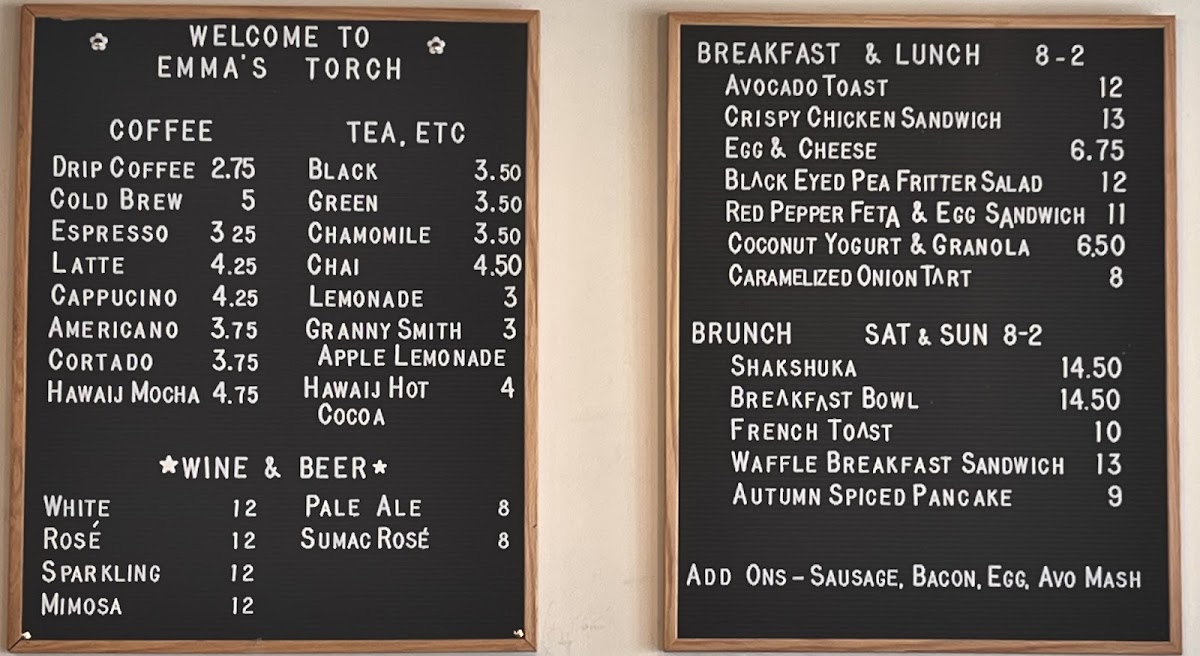 WELCOME TO
EMMA'S TORCH
COFFEE
DRIP COFFEE 2.75
COLD BREW 5
ESPRESSO 3 25
LATTE 4.25
CAPPUCINO 4.25
AMERICANO 3.75
CORTADO 3.75
HAWAIJ MOCHA 4.75
TEA, ETC
BLACK 3.50
GREEN 3.50
CHAMOMILE 3.50
CHAI 4.50
LEMONADE 3
GRANNY SMITH 3
APPLE LEMONADE
HAWAIJ HOT 4
COCOA
★WINE & BEER★
WHITE 12
ROSÉ 12
SPARKLING 12
MIMOSA 12
PALE ALE 8
SUMAC ROSÉ 8
BREAKFAST & LUNCH 8-2
AVOCADO TOAST 12
CRISPY CHICKEN SANDWICH 13
EGG & CHEESE 6.75
BLACK EYED PEA FRITTER SALAD 12
RED PEPPER FETA & EGG SANDWICH 11
COCONUT YOGURT & GRANOLA 6.50
CARAMELIZED ONION TART 8
BRUNCH SAT & SUN 8-2
SHAKSHUKA 14.50
BREAKFAST BOWL 14.50
FRENCH TOAST 10
WAFFLE BREAKFAST SANDWICH 13
AUTUMN SPICED PANCAKE 9
ADD ONS - SAUSAGE, BACON, EGG, AVO MASH